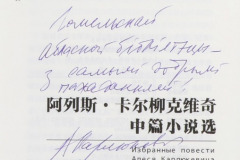 Гомельскай
абласной бібліятэцы –
з самымі добрымі
пажаданнямі!
阿列斯·卡尔柳克维奇
中篇小说选
Избранные повести
Алеся Карлюкевича